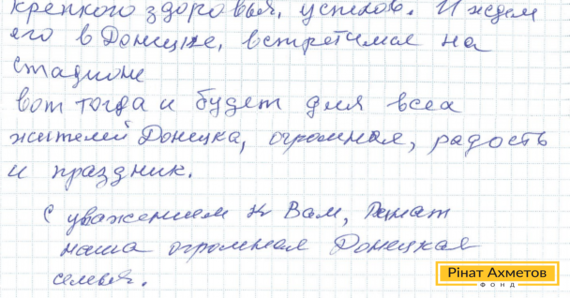 крепкого здоровья, успехов. И ждем
его в Донецке, встретимся на
стадионе
вот тогда и будет для всех
жителей Донецка, огромная, радость
и праздник.
С уважением к Вам, Ринат
наша огромная Донецкая
семья.
Рінат Ахметов
ФОНД